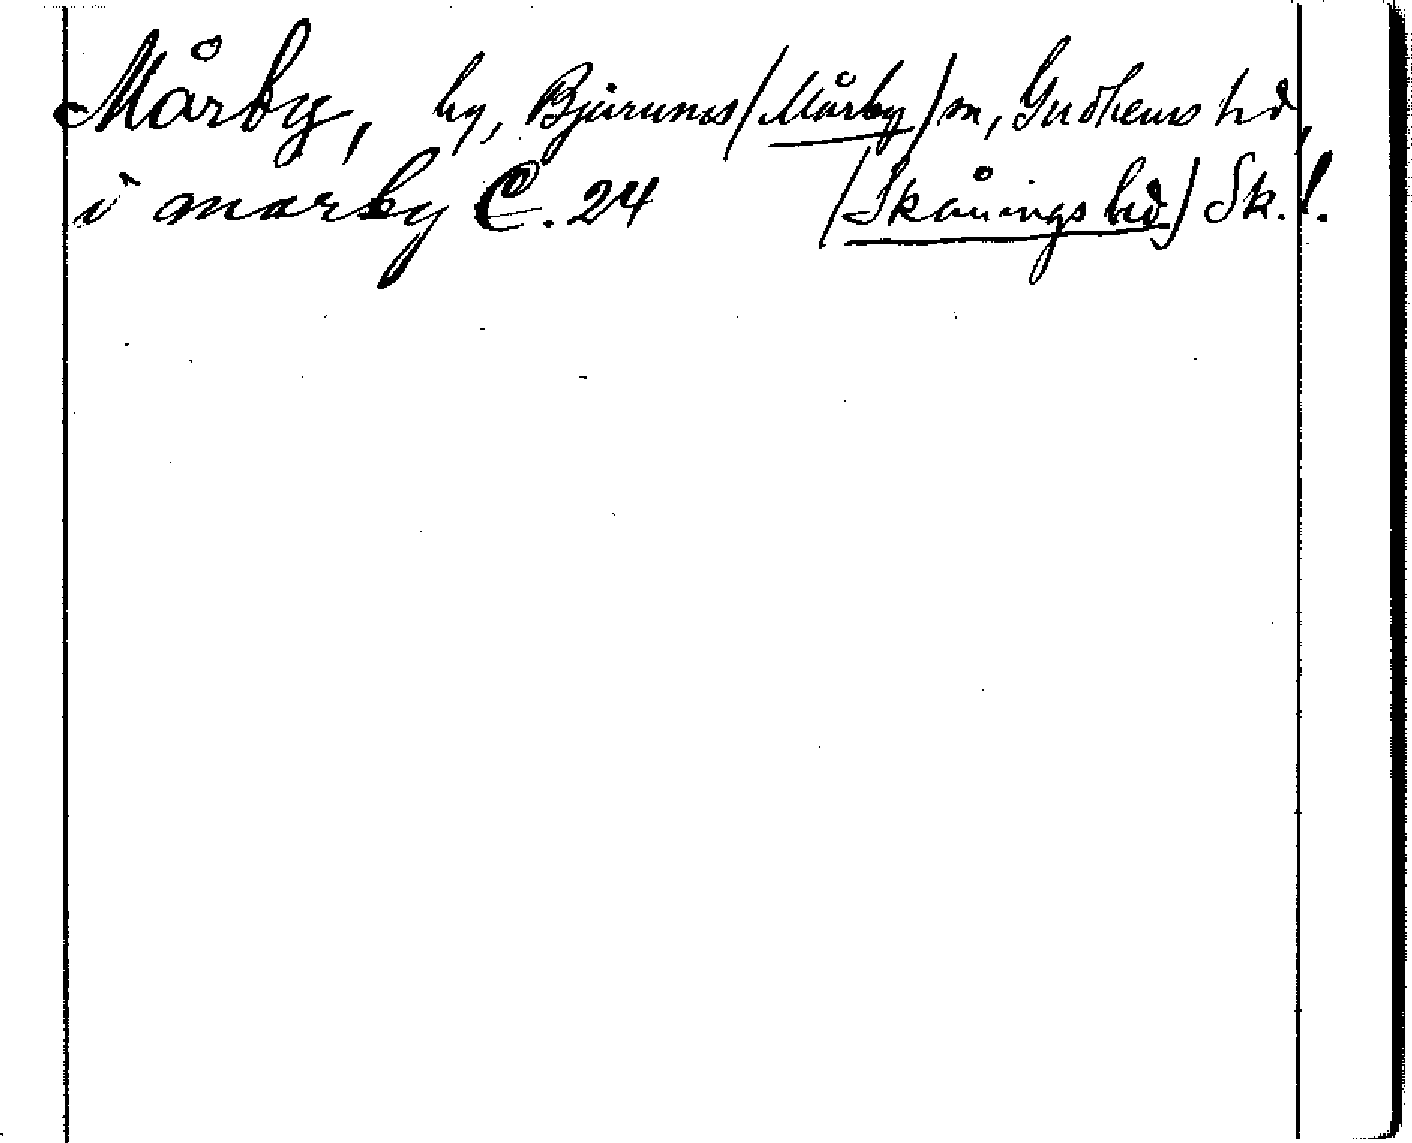 Mårby, by, Bjurums (Mårby) sn, Gudhems hd,
i marby C. 24 (Skånings hd) Sk. l.